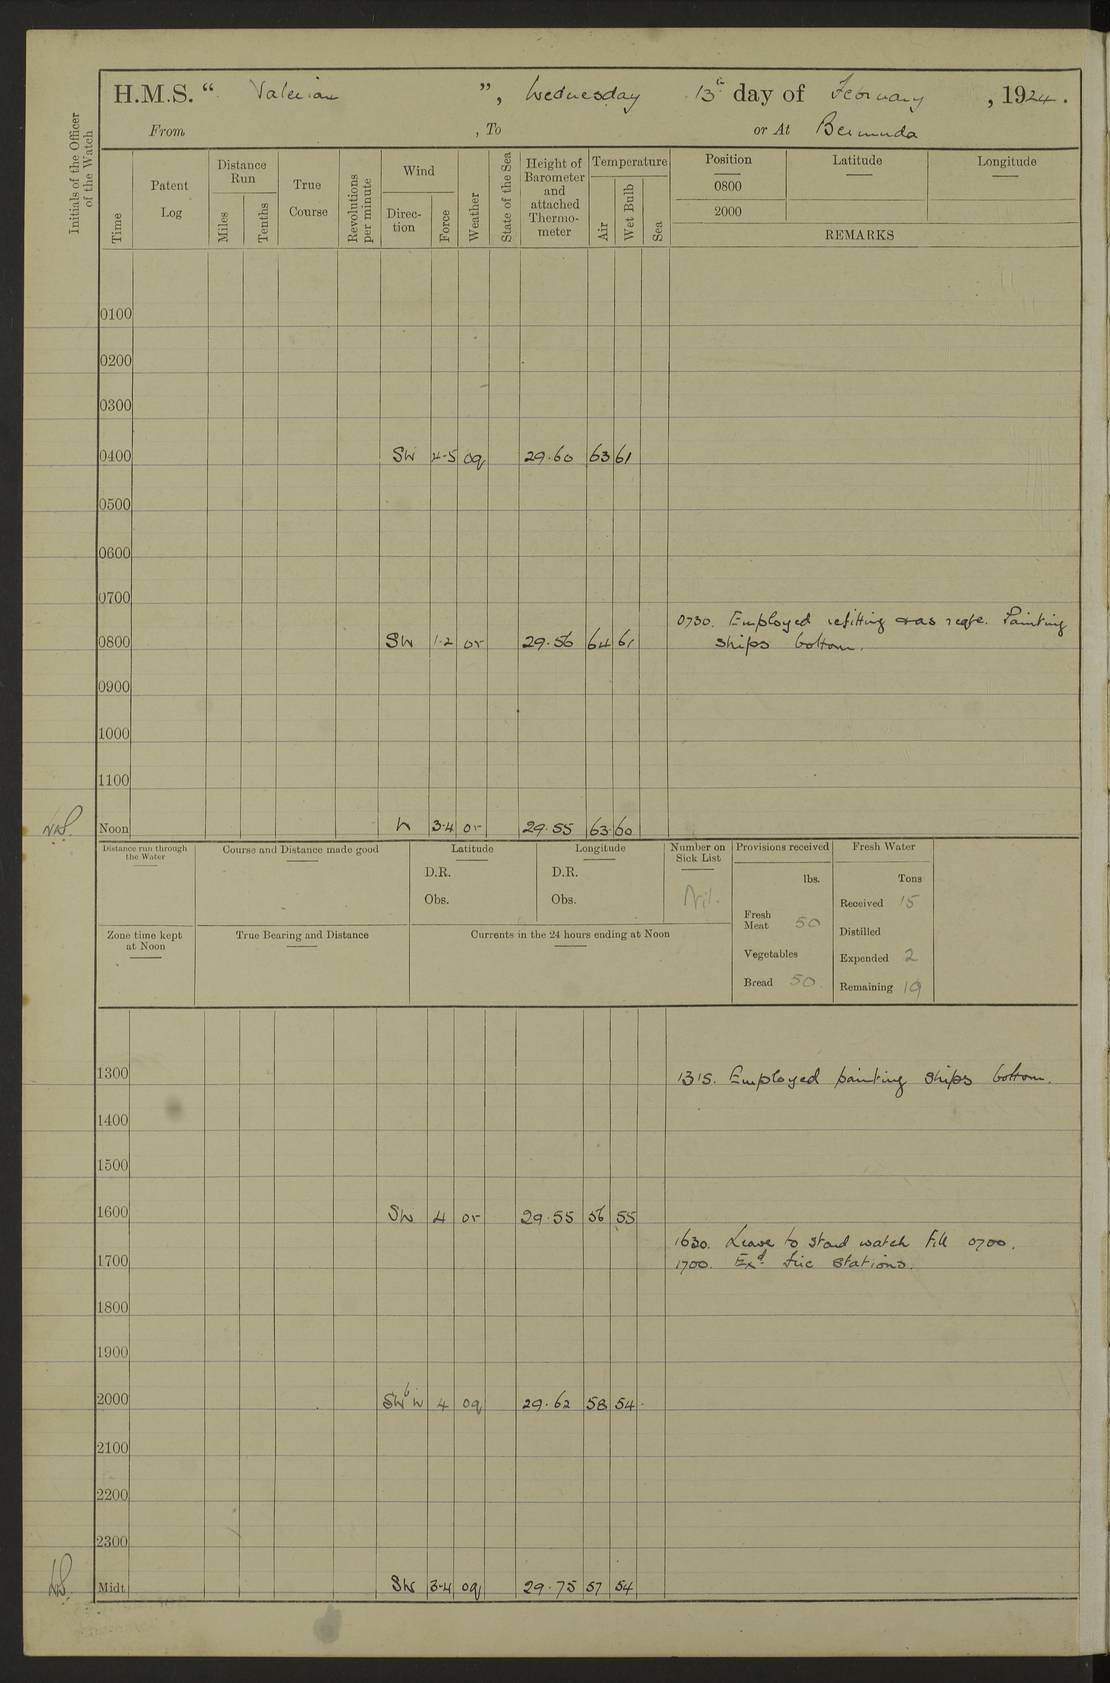 H.M.S. “ Valerian ”, Wednesday 13th day of February, 1924.
From , To or At Bermuda
Initials of the Officer of the Watch
Time
Patent Log
Distance Run
Miles
Tenths
True Course
Revolutions per minute
Wind
Direc-tion
Force
Weather
State of the Sea
Height of Barometer and attached Thermo-meter
Temperature
Air
Wet Bulb
Sea
Position
0800
2000
Latitude
Longitude
REMARKS
0100
0200
0300
0400 SW 4-5 oq 29.60 63 61
0500
0600
0700
0730. Employed refitting and as reqte. Painting
0800 SW 1-2 or 29.56 64 61 ships bottom.
0900
1000
1100
Noon W 3-4 or 29.55 63 60
Distance run through the Water
Course and Distance made good
Latitude
D.R.
Obs.
Longitude
D.R.
Obs.
Number on Sick List
Nil.
Provisions received
lbs.
Fresh Meat 50
Vegetables
Bread 50.
Fresh Water
Tons
Received 15
Distilled
Expended 2
Remaining 19
Zone time kept at Noon
True Bearing and Distance
Currents in the 24 hours ending at Noon
1300 1315. Employed painting ships bottom.
1400
1500
1600 SW 4 or 29.55 56 55
1630. Leave to stand watch till 0700.
1700 1700. Exd. fire stations.
1800
1900
2000 SW b W 4 oq 29.62 58 54
2100
2200
2300
Midt. SW 3-4 oq 29.75 57 54